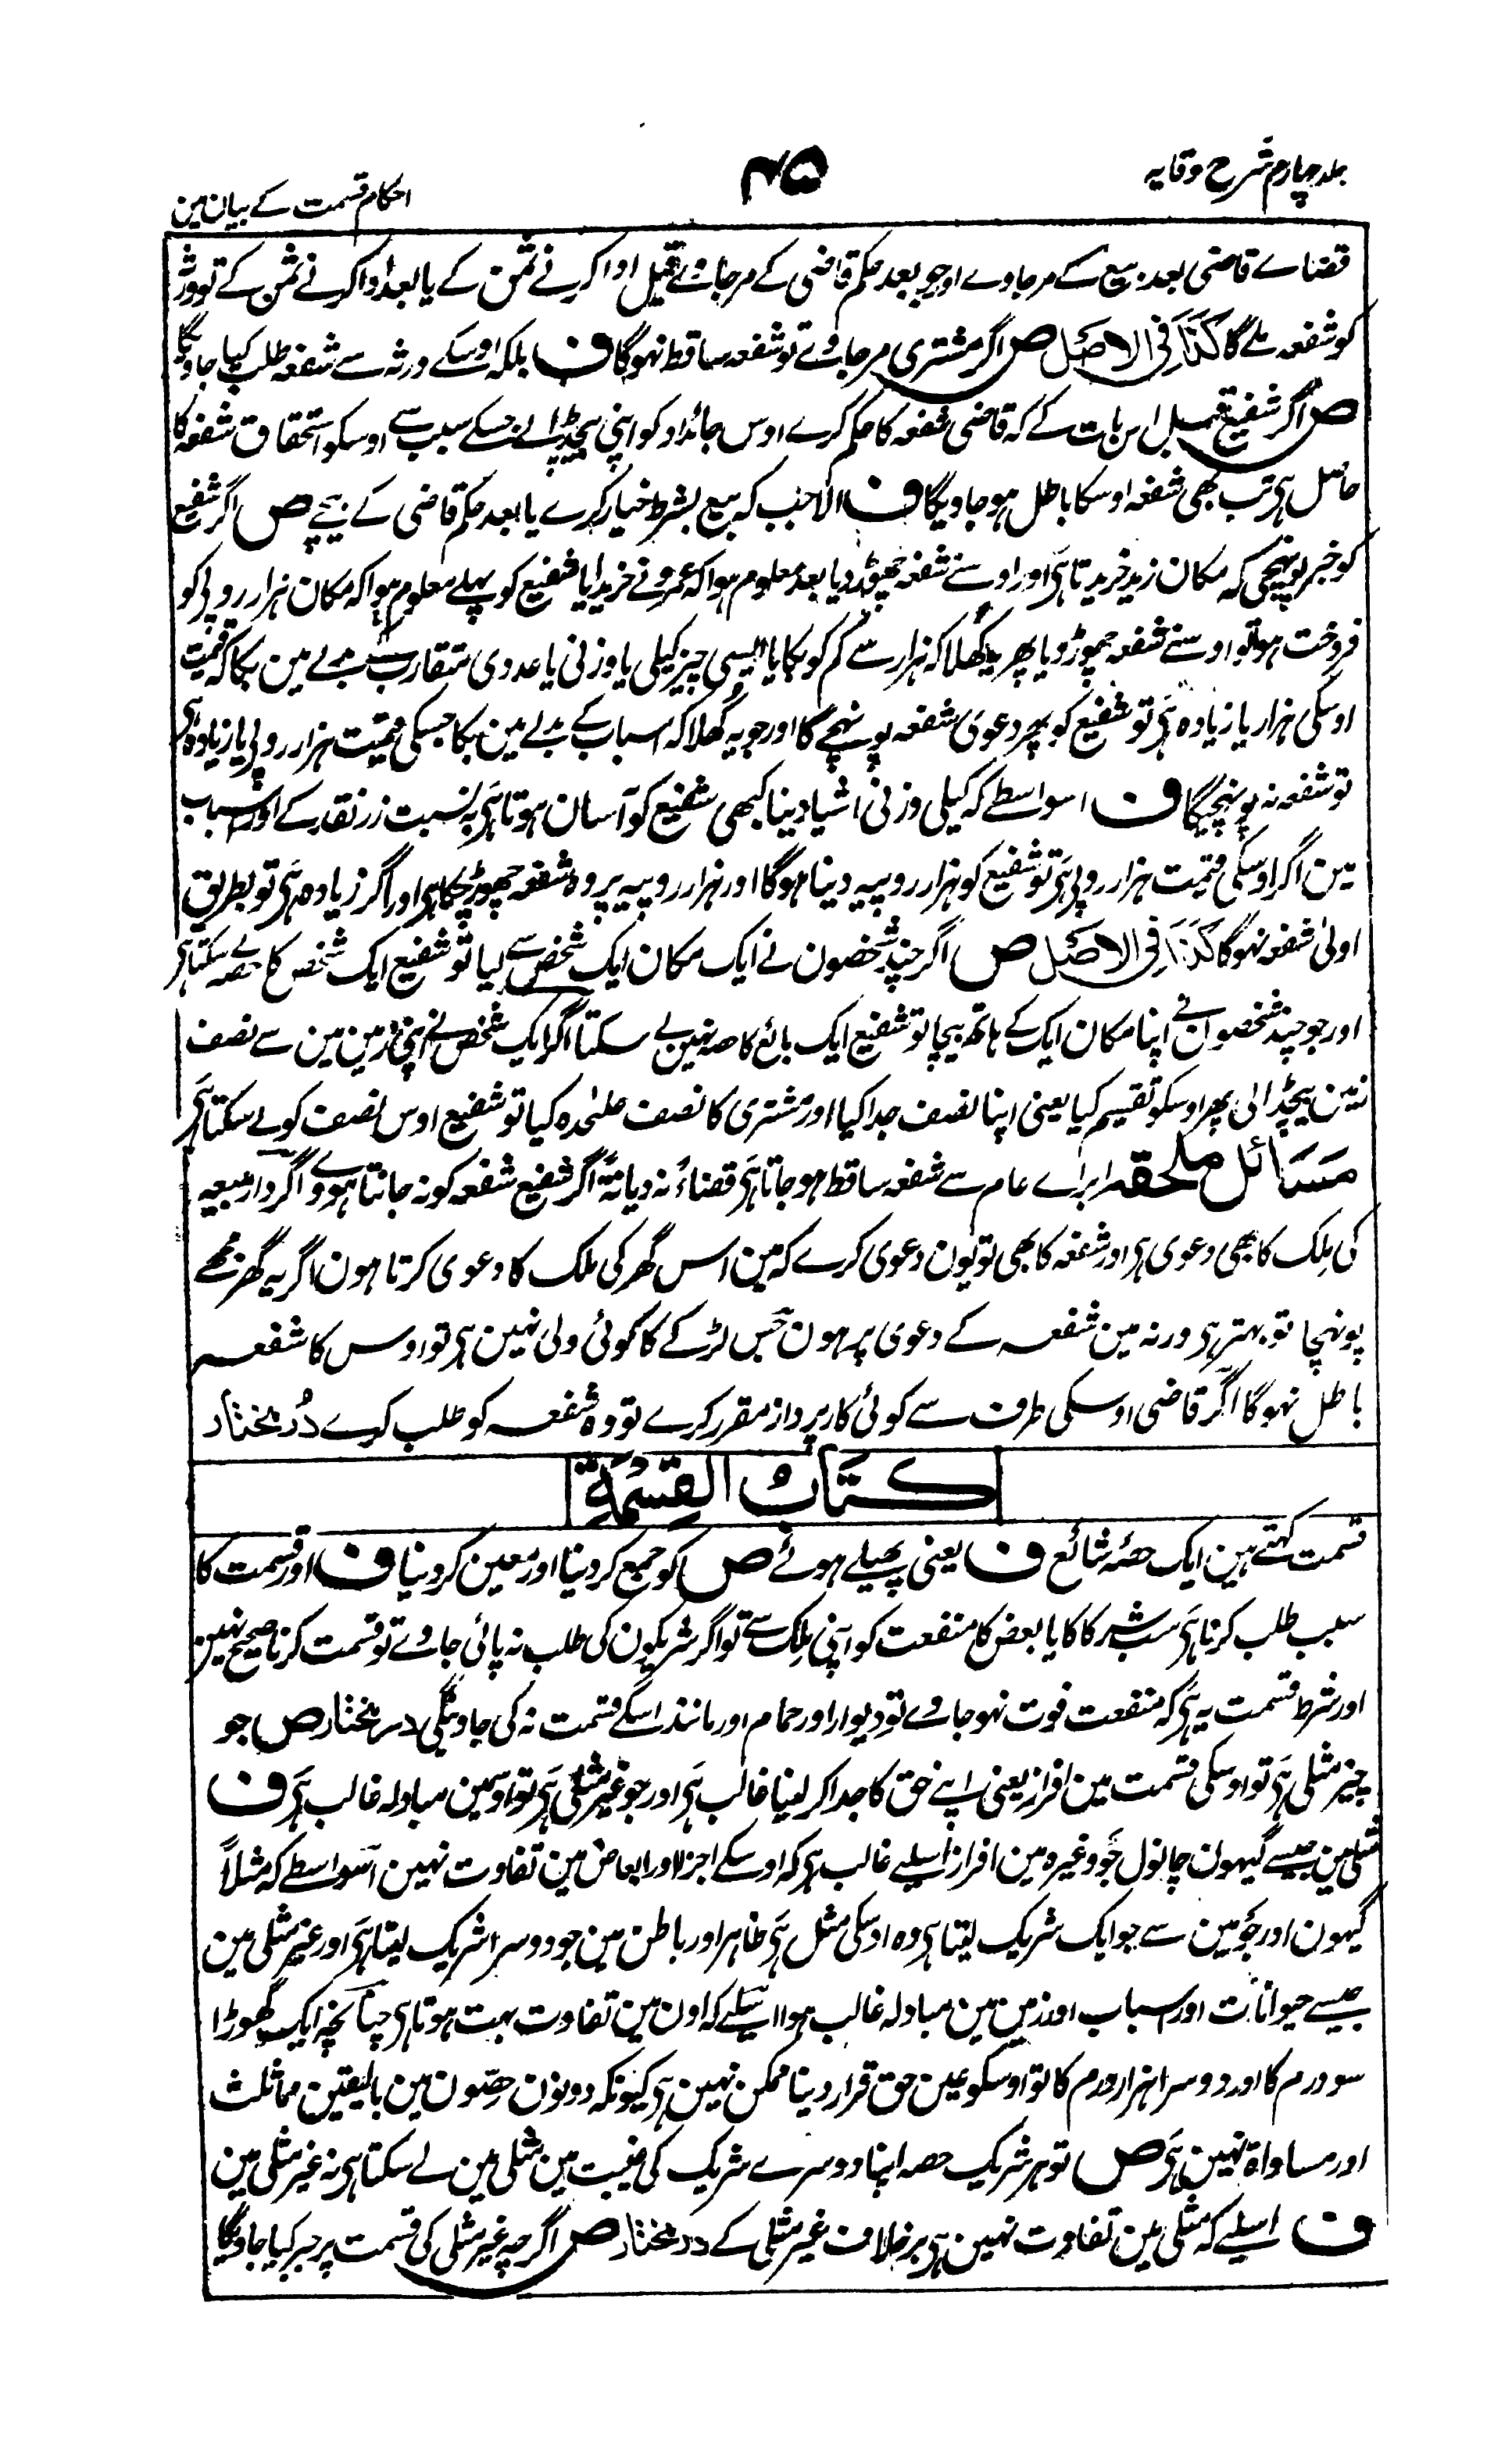 جلد چہارم شرح وقایہ
۴۵
احکام قسمت کے بیان مین
قضاے قاضی بعد بیع کے مرجاوے اور جو بعد حکم قاضی کے مرجاوے قبل ادا کرنے ثمن کے یا بعد ادا کرنے ثمن کے تو ورثہ
کو شفعہ ملے گا کَذَا فِی الاَصْل ص اگر مشتری مرجاوے تو شفعہ ساقط نہوگا ف بلکہ اوسکے ورثہ سے شفعہ طلب کیا جاویگا
ص اگر شفیع قبل اس بات کے کہ قاضی شفعہ کا حکم کرے اوس جائداد کو اپنی بیچڈالے جسکے سبب سے اوسکو استحقاق شفعہ کا
حاصل ہی تب بھی شفعہ اوسکا باطل ہو جاویگا ف الا جب کہ بیع بشرط خیار کرے یا بعد حکم قاضی کے بیچے ص اگر شفیع
کو خبر پونہچی کہ مکان زید خریدتا ہی اور اوسنے شفعہ چھوڑ دیا بعد معلوم ہوا کہ عمرو نے خریدا یا شفیع کو پہلے معلوم ہوا کہ مکان ہزار روپی کو
فروخت ہوا تو اوسنے شفعہ چھوڑ دیا پھر یہ کھلا کہ ہزار سے کم کو بکا یا ایسی چیز کیلی یا وزنی یا عددی متقارب کے بدلے مین بکا کہ قیمت
اوسکی ہزار یا زیادہ ہی تو شفیع کو پھر دعوی شفعہ پونہچے گا اور جو یہ کھلا کہ اسباب کے بدلے مین بکا جسکی قیمت ہزار روپی یا زیادہ ہی
تو شفعہ نہ پونہچیگا ف اسواسطے کہ کیلی وزنی اشیا دینا کبھی شفیع کو آسان ہوتا ہی بہ نسبت زر نقد کے اور اسباب
مین اگر اوسکی قیمت ہزار روپی ہی تو شفیع کو ہزار روپیہ دینا ہوگا اور ہزار روپیہ پر وہ شفعہ چھوڑ چکا ہی اور اگر زیادہ ہی تو بطریق
اولیٰ شفعہ نہوگا کَذَا فِی الاَصْل ص اگر چند شخصون نے ایک مکان ایک شخص سے لیا تو شفیع ایک شخص کا حصہ لے سکتا ہی
اور جو چند شخصون نے اپنا مکان ایک کے ہاتھ بیچا تو شفیع ایک بائع کا حصہ نہین لے سکتا اگر ایک شخص نے اپنی زمین مین سے نصف
زمین بیچڈالی پھر اوسکو تقسیم کیا یعنی اپنا نصف جدا کیا اور مشتری کا نصف علیٰحدہ کیا تو شفیع اوس نصف کو لے سکتا ہی
مَسَائل ملحقہ ابراے عام سے شفعہ ساقط ہو جاتا ہی قضاءً نہ دیانۃً اگر شفیع شفعہ کو نہ جانتا ہووے اگر دار مبیعہ
کی ملک کا بھی دعوی ہی اور شفعہ کا بھی تو یون دعوی کرے کہ مین اس گھر کی ملک کا دعوی کرتا ہون اگر یہ گھر مجھے
پونہچا تو بہتر ہی ورنہ مین شفعہ کے دعوی پر ہون جس لڑکے کا کوئی ولی نہین ہی تو اوس کا شفعہ
باطل نہوگا اگر قاضی اوسکی طرف سے کوئی کارپرداز مقرر کرے تو وہ شفعہ کو طلب کرے دُر مختار
کتابُ القِسْمَةِ
قسمت کہتے ہین ایک حصۂ شائع ف یعنی پھیلے ہوئے ص کو جمع کر دینا اور معین کر دینا ف اور قسمت کا
سبب طلب کرنا ہی سب شرکا کا یا بعض کا منفعت کو اپنی ملک سے تو اگر شریکون کی طلب نہ پائی جاوے تو قسمت کرنا صحیح نہین
اور شرط قسمت یہ ہی کہ منفعت فوت نہو جاوے تو دیوار اور حمام اور مانند اسکے قسمت نہ کی جاویگی در مختار ص جو
چیز مثلی ہی تو اوسکی قسمت مین افراز یعنی اپنے حق کا جدا کر لینا غالب ہی اور جو غیر مثلی ہی تو اوسمین مبادلہ غالب ہی ف
مثلی مین جیسے گیہون چانول جَو وغیرہ مین افراز اسلیے غالب ہی کہ اوسکے اجزا اور ابعاض مین تفاوت نہین اسواسطے کہ مثلاً
گیہون اور جَو مین سے جو ایک شریک لیتا ہی وہ اوسکی مثل ہی ظاہر اور باطن مین جو دوسرا شریک لیتا ہی اور غیر مثلی مین
جیسے حیوانات اور اسباب اور زمین مین مبادلہ غالب ہوا اسلیے کہ اون مین تفاوت بہت ہوتا ہی چنانچہ ایک گھوڑا
سو درم کا اور دوسرا ہزار درم کا تو اوسکو عین حق قرار دینا ممکن نہین ہی کیونکہ دونون حصّون مین بالیقین مماثلث
اور مساواۃ نہین ہی ص تو ہر شریک حصہ اپنا دوسرے شریک کی غیبت مین مثلی مین لے سکتا ہی نہ غیر مثلی مین
ف اسلیے کہ مثلی مین تفاوت نہین ہی برخلاف غیر مثلی کے در مختار ص اگرچہ غیر مثلی کی قسمت پر جبر کیا جاویگا